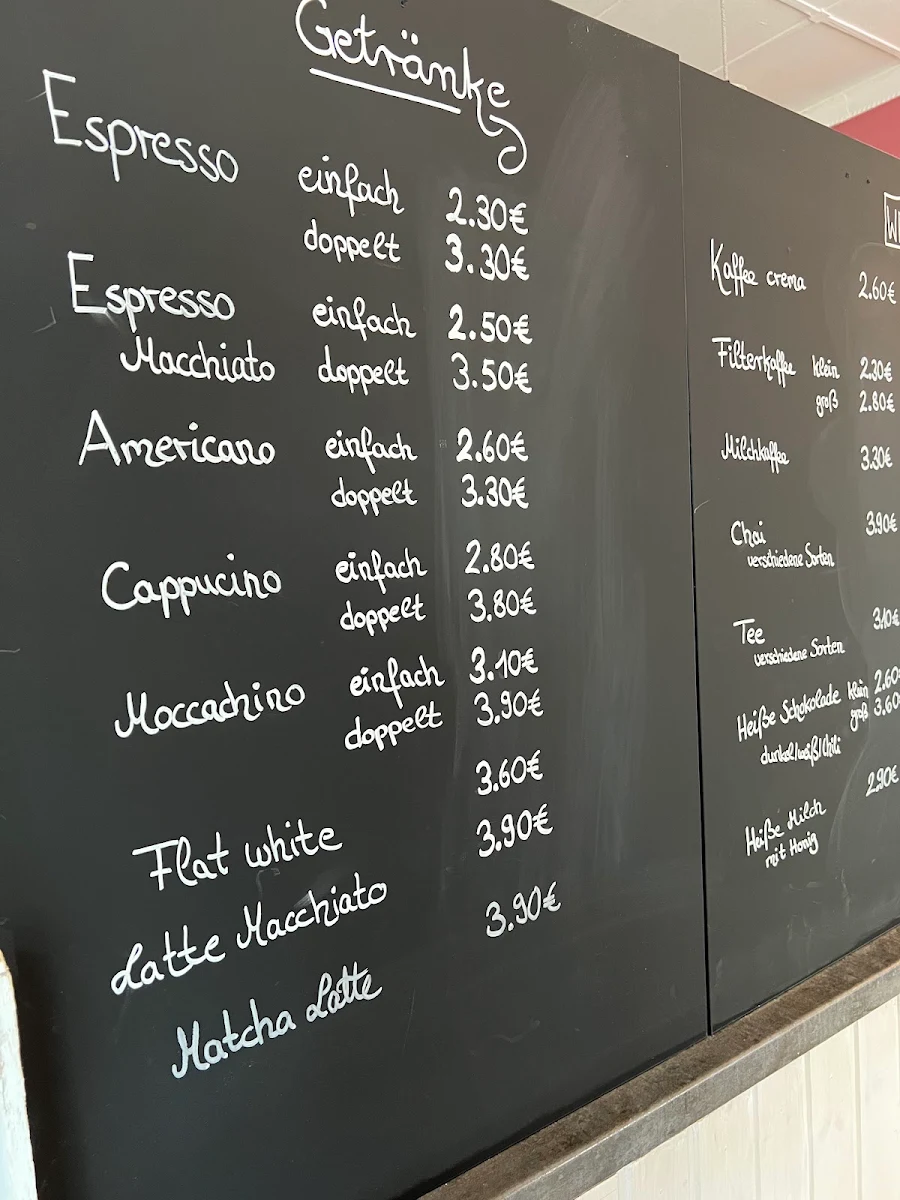 Getränke
Espresso einfach 2.30€
doppelt 3.30€
Espresso einfach 2.50€
Macchiato doppelt 3.50€
Americano einfach 2.60€
doppelt 3.30€
Cappucino einfach 2.80€
doppelt 3.80€
Moccachino einfach 3.10€
doppelt 3.90€
Flat white 3.60€
Latte Macchiato 3.90€
Matcha Latte 3.90€
Kaffee crema 2.60€
Filterkaffee klein 2.30€
groß 2.80€
Milchkaffee 3.30€
Chai 3.90€
verschiedene Sorten
Tee 3.10€
verschiedene Sorten
Heiße Schokolade klein 2.60
groß 3.60
dunkel/weiß/Chili
Heiße Milch 2.90€
mit Honig